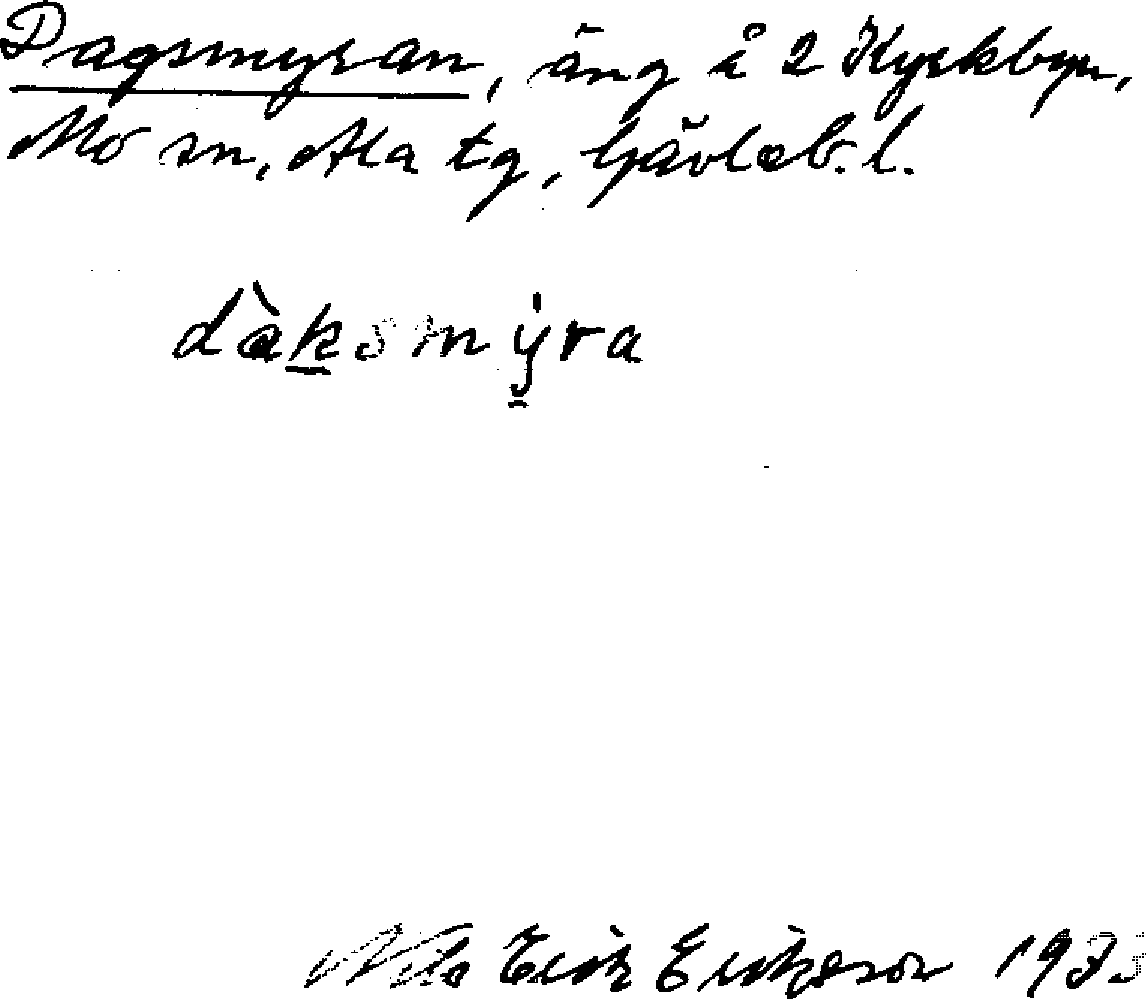 Dagsmyran, äng å 2 Kyrkbyn,
Mo sn, Ala tg, Gävleb. l.
dàksmy̍ra
Nils Erik Eriksson 1933